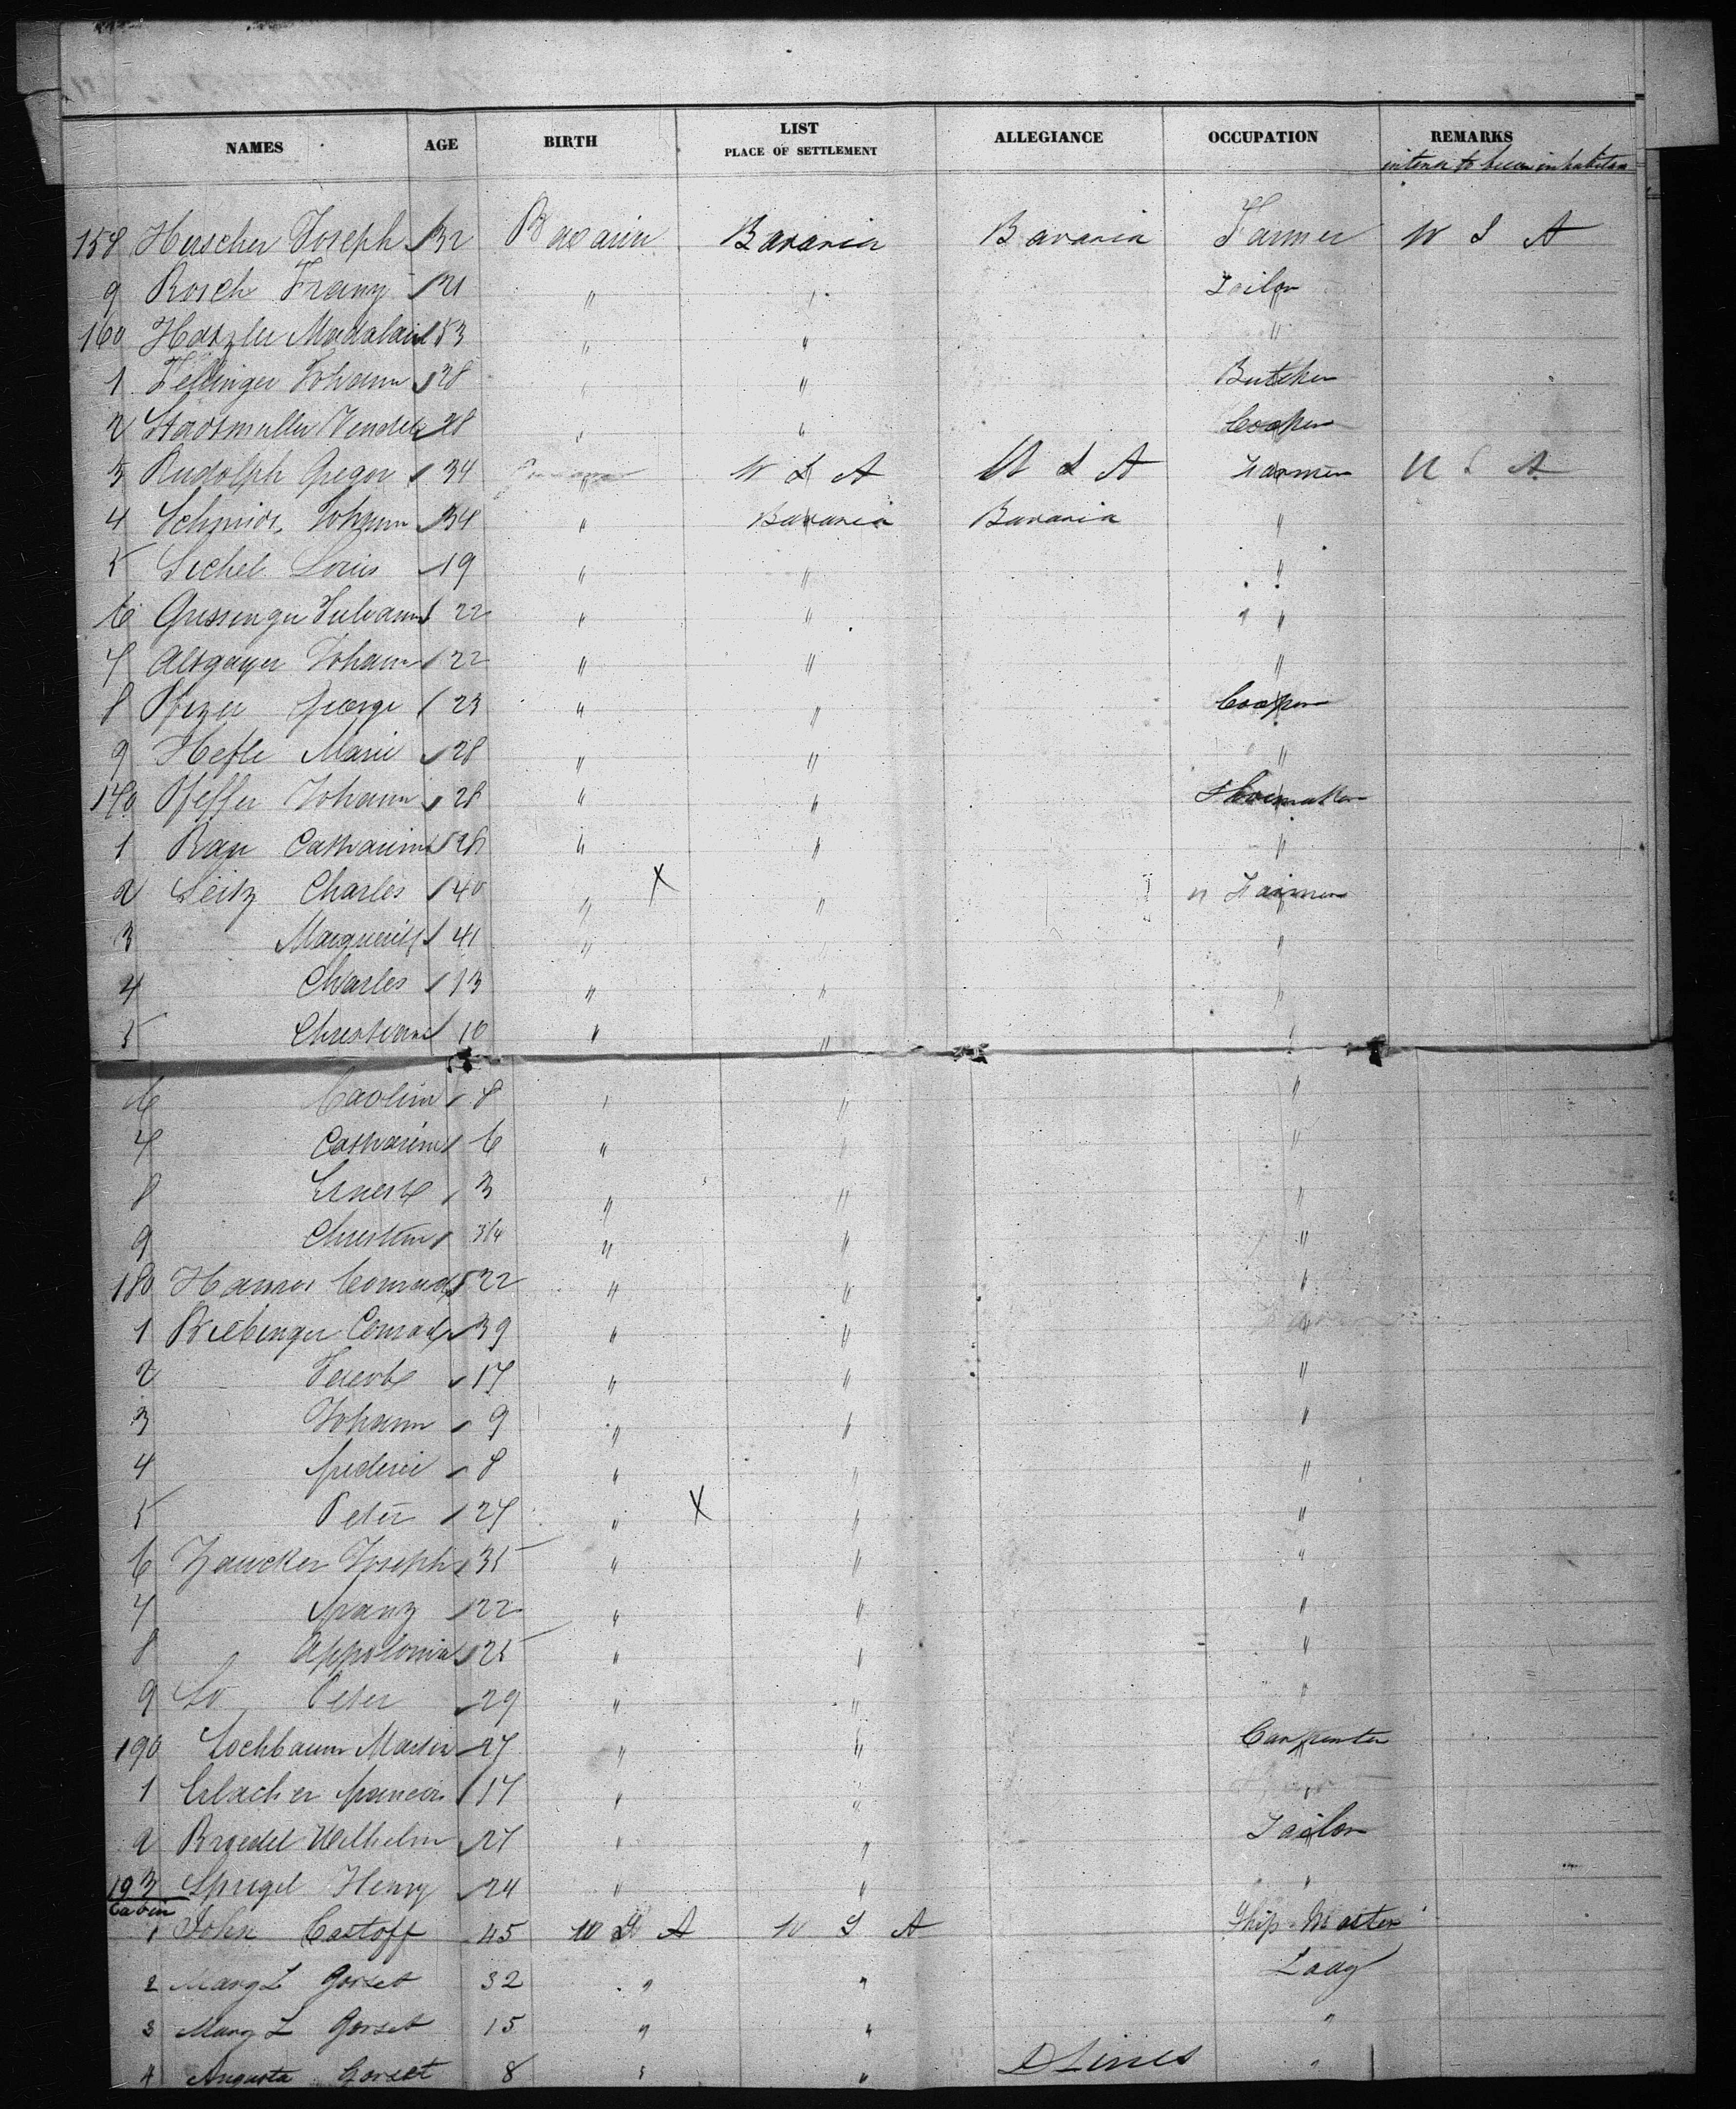 NAMES AGE BIRTH LIST PLACE OF SETTLEMENT ALLEGIANCE OCCUPATION REMARKS
intend to become inhabitan
158 Herscher Joseph 32 Bavaria Bavaria Bavaria Farmer U S A
9 Rosch Franz 21 " " Tailor
160 Hatzler 53 " " "
1 Johann 28 " " Butcher
2 28 " " Cooper
3 Rudolph Gregor 34 " U S A U S A Farmer U S A
4 Schmidt Johann 34 " Bavaria Bavaria "
5 Sichel Louis 19 " " "
6 22 " " "
7 Altgayer Johann 22 " " "
8 George 23 " " Cooper
9 Hefle Marie 28 " " "
170 Pfeffer Johann 28 " " Shoemaker
1 Rau Catharine 28 " " "
2 Seitz Charles 40 " X " " Farmer
3 Marguerite 41 " " "
4 Charles 13 " " "
5 Christian 10 " " "
6 Caolin 8 " " "
7 Catharine 6 " " "
8 Ernest 3 " " "
9 Christian 3/4 " " "
180 Conrad 22 " " "
1 Biebinger Conrad 39 " " "
2 Jacob 17 " " "
3 Johann 9 " " "
4 frederic 8 " " "
5 Peter 27 " X " "
6 Zaucker Joseph 35 " " "
7 franz 22 " " "
8 Appolonia 25 " " "
9 Do Peter 29 " " "
190 Hochbaum Martin 27 " " Carpenter
1 Erlacher francois 17 " " "
2 Broedel Wilhelm 27 " " Tailor
193 Spiegel Henry 24 " " "
Cabin
1 John Castoff 45 U S A U S A Ship Master
2 Mary L Gorset 32 " " Lady
3 Mary L Gorset 15 " " "
4 Augusta Gorset 8 " " "